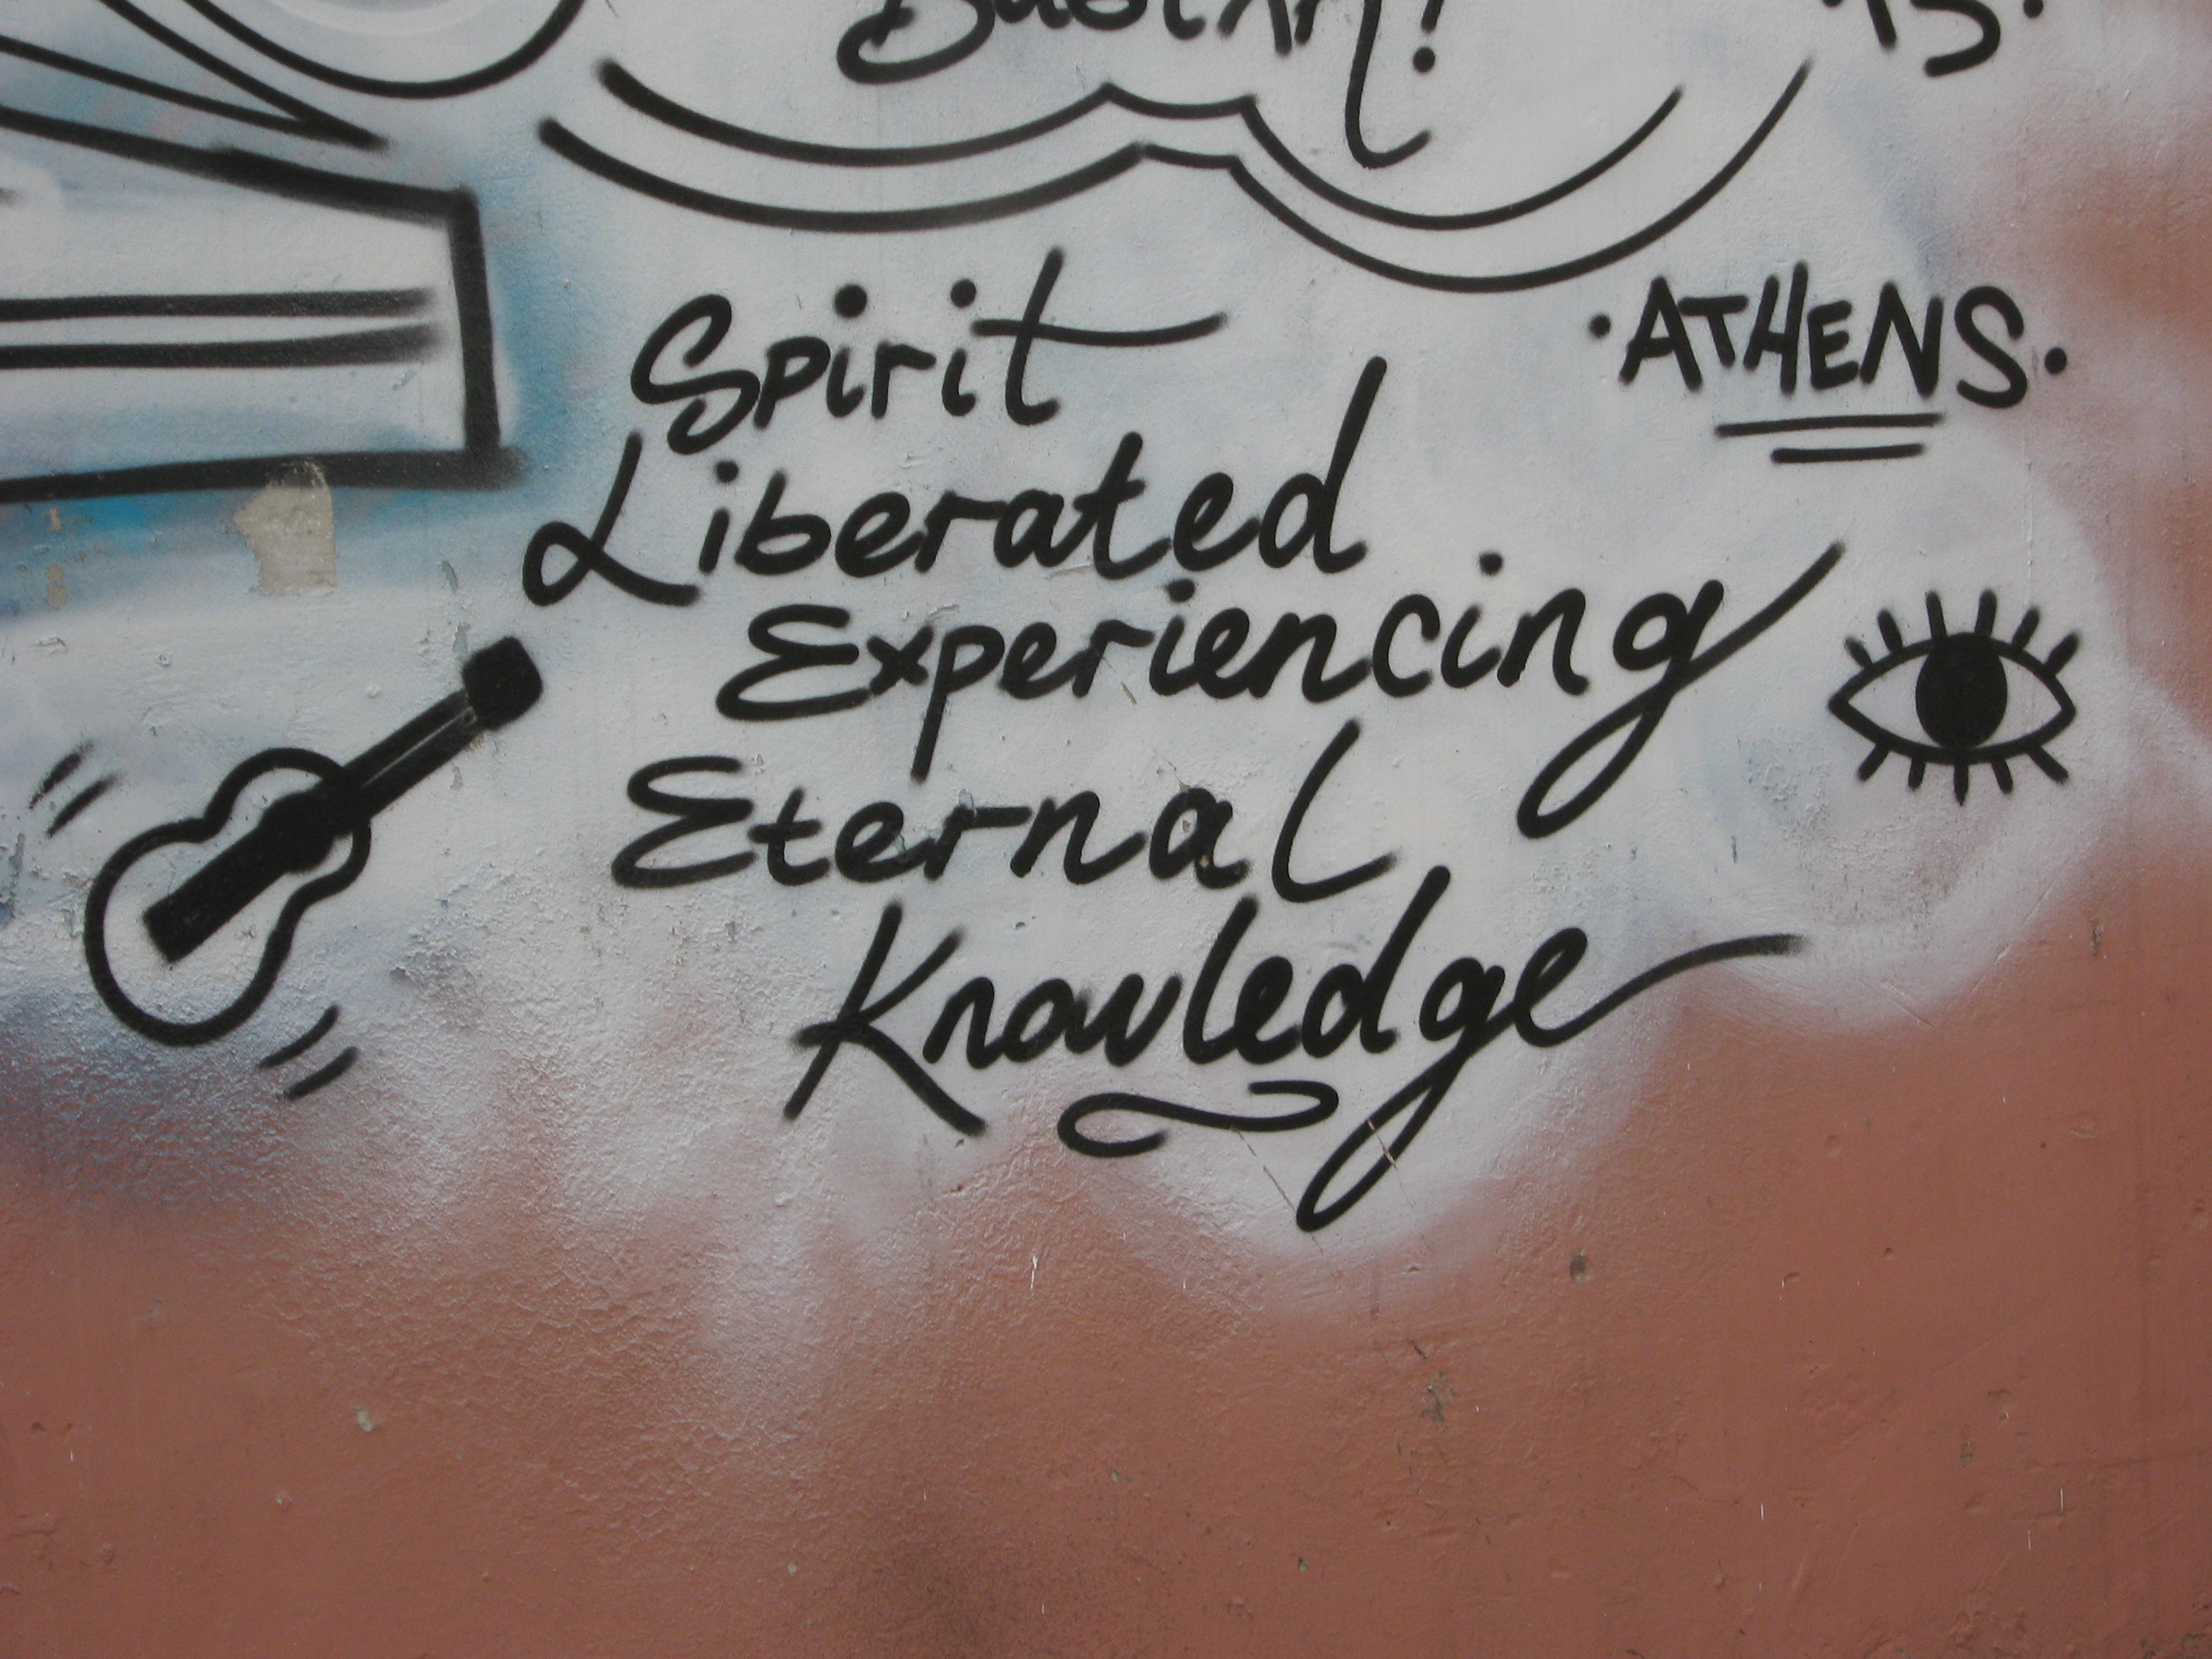 15.
Spirit
·ATHENS.
Liberated
Experiencing
Eternal
Knowledge